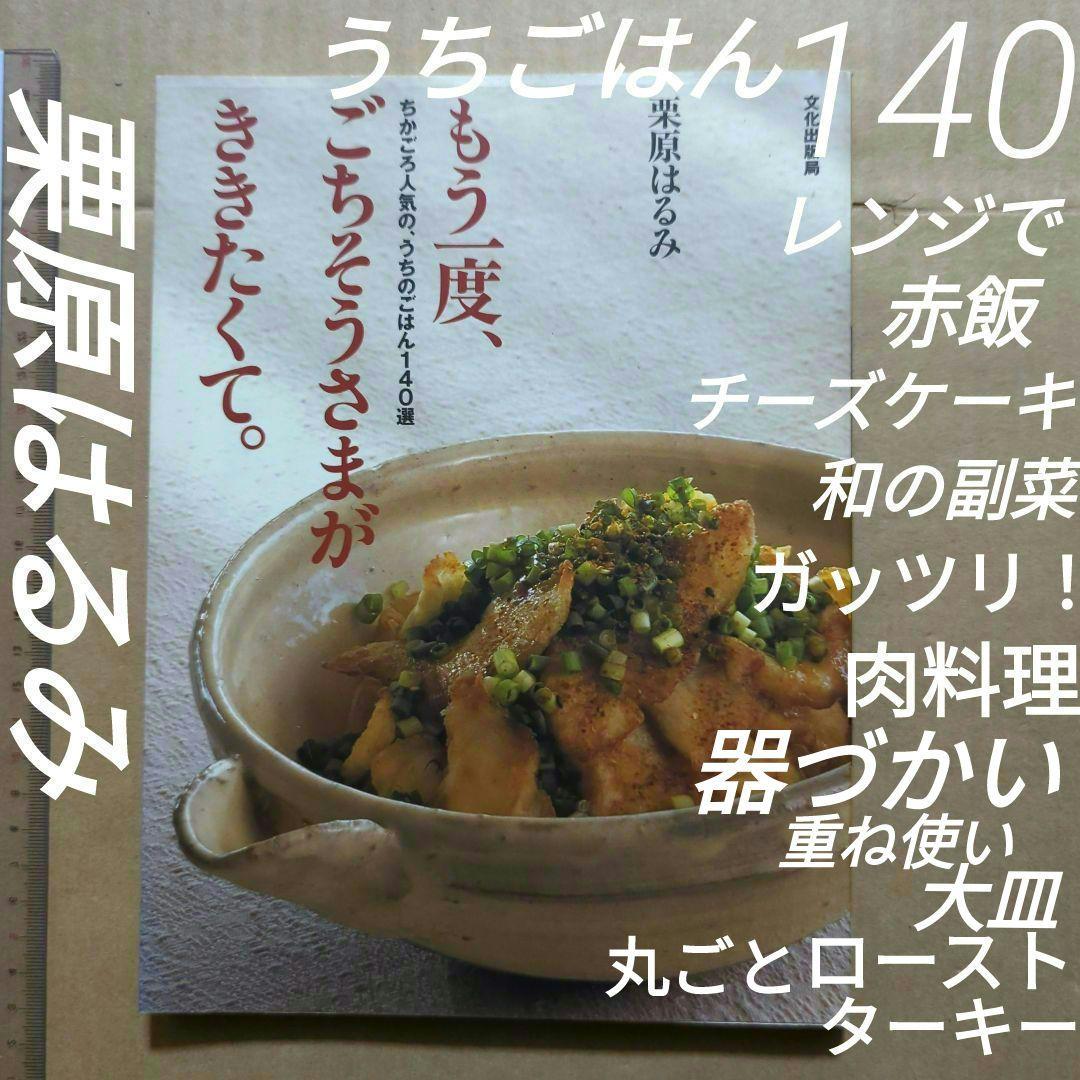 うちごはん140
栗原はるみ
文化出版局
栗原はるみ
もう一度、
ちかごろ人気の、うちのごはん140選
ごちそうさまが
ききたくて。
レンジで
赤飯
チーズケーキ
和の副菜
ガッツリ！
肉料理
器づかい
重ね使い
大皿
丸ごとロースト
ターキー